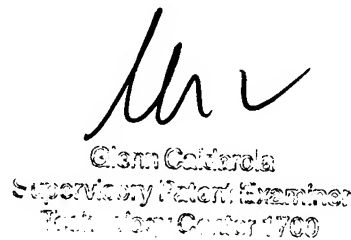 Glenn Caldarola
Supervisory Patent Examiner
Technology Center 1700